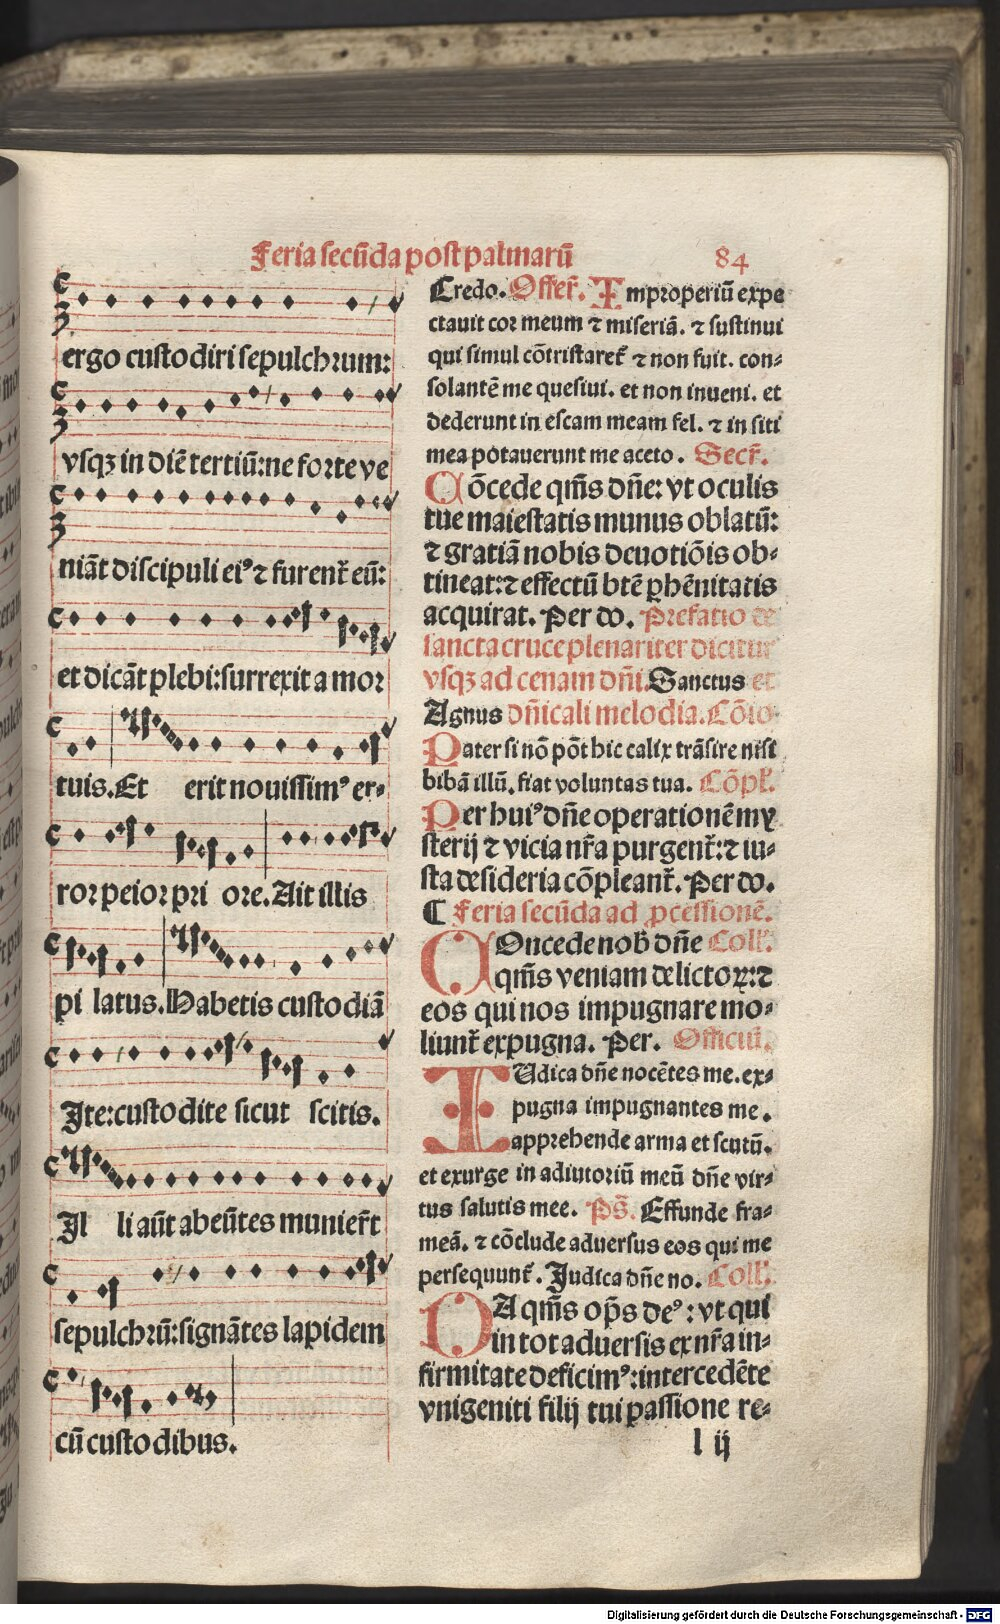 Feria secūda post palmarū 84
ergo custodiri sepulchrum:
vsqꝫ in diē tertiū: ne forte ve
niāt discipuli eiꝰ ⁊ furent᷑ eū:
et dicāt plebi: surrexit a mor
tuis. Et erit nouissimꝰ er⸗
ror peior pri ore. Ait illis
pi latus. Habetis custodiā
Ite: custodite sicut scitis.
Il li aūt abeūtes munier̄t
sepulchrū: signātes lapidem
cū custodibus.
Credo. Offer̄. Improperiū expe
ctauit cor meum ⁊ miseriā. ⁊ sustinui
qui simul cōtristaret᷑ ⁊ non fuit. con⸗
solantē me quesiui. et non inueni. et
dederunt in escam meam fel. ⁊ in siti
mea potauerunt me aceto. Secr̄.
Cōcede qm̄s dn̄e: vt oculis
tue maiestatis munus oblatū:
⁊ gratiā nobis deuotiōis ob⸗
tineat: ⁊ effectū btē ꝑhēnitatis
acquirat. Per do. Prefatio de
sancta cruce plenariter dicitur
vsqꝫ ad cenam dn̄i. Sanctus et
Agnus dn̄icali melodia. Cōio.
Pater si nō pōt hic calix trāsire nisi
bibā illū. fiat voluntas tua. Cōpl̄.
Per huiꝰ dn̄e operationē my
sterij ⁊ vicia nr̄a purgent᷑: ⁊ iu⸗
sta desideria cōpleant᷑. Per do.
¶ Feria secūda ad ꝓcessionē.
COncede nob̄ dn̄e Coll̄.
qm̄s veniam delictoꝝ: ⁊
eos qui nos impugnare mo⸗
liunt᷑ expugna. Per. Officiū.
IUdica dn̄e nocētes me. ex⸗
pugna impugnantes me.
apprehende arma et scutū.
et exurge in adiutoriū meū dn̄e vir⸗
tus salutis mee. Ps̄. Effunde fra⸗
meā. ⁊ cōclude aduersus eos qui me
persequunt᷑. Judica dn̄e no. Coll̄.
DA qm̄s op̄s deꝰ: vt qui
in tot aduersis ex nr̄a in⸗
firmitate deficimꝰ: intercedēte
vnigeniti filij tui passione re⸗
l ij
Digitalisierung gefördert durch die Deutsche Forschungsgemeinschaft - DFG